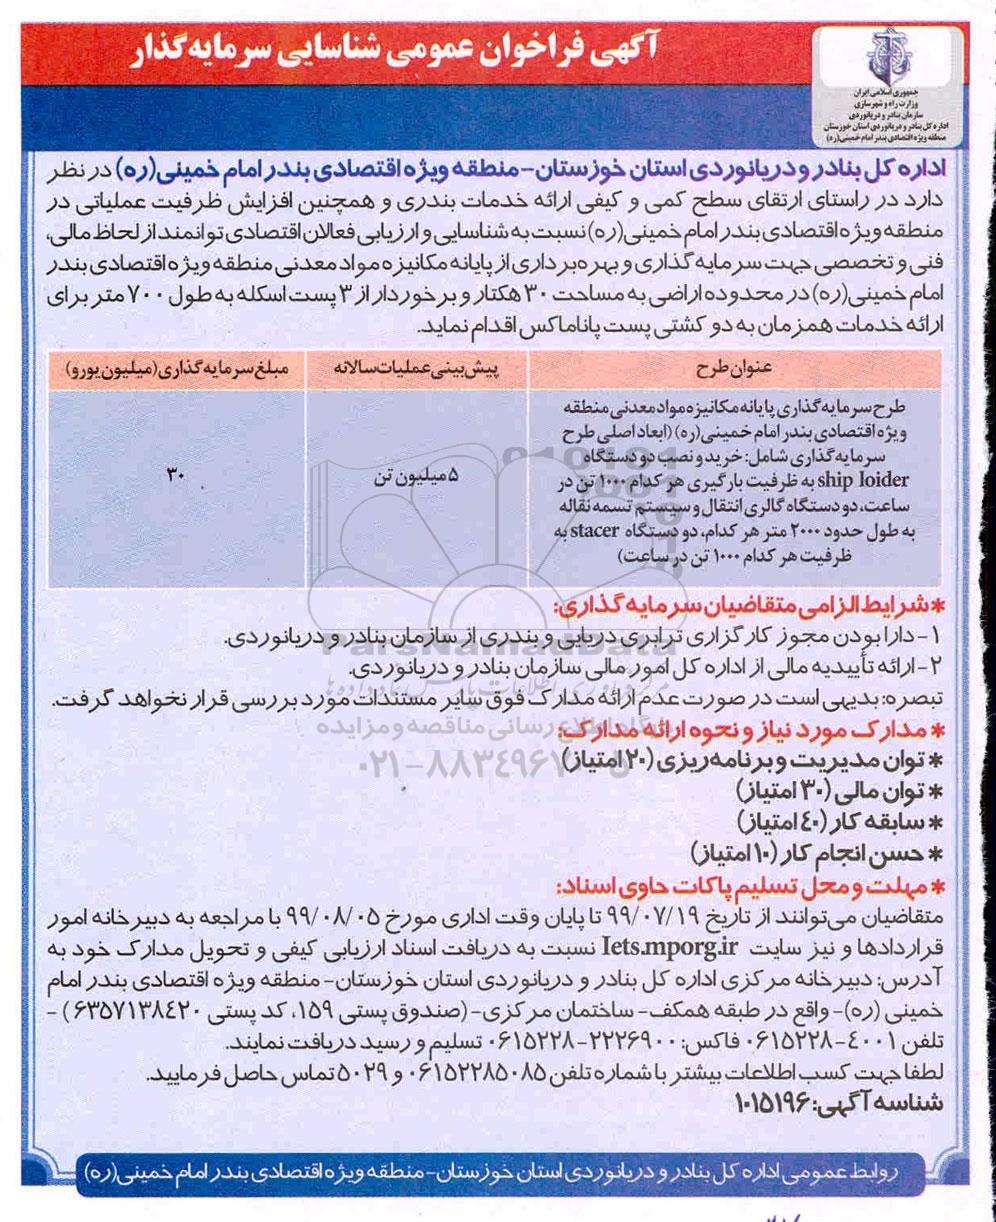 آگهی فراخوان عمومی شناسایی سرمایه‌گذار
جمهوری اسلامی ایران
وزارت راه و شهرسازی
سازمان بنادر و دریانوردی
اداره کل بنادر و دریانوردی استان خوزستان
منطقه ویژه اقتصادی بندر امام خمینی(ره)
اداره کل بنادر و دریانوردی استان خوزستان-منطقه ویژه اقتصادی بندر امام خمینی(ره) در نظر
دارد در راستای ارتقای سطح کمی و کیفی ارائه خدمات بندری و همچنین افزایش ظرفیت عملیاتی در
منطقه ویژه اقتصادی بندر امام خمینی(ره) نسبت به شناسایی و ارزیابی فعالان اقتصادی توانمند از لحاظ مالی،
فنی و تخصصی جهت سرمایه‌گذاری و بهره‌برداری از پایانه مکانیزه مواد معدنی منطقه ویژه اقتصادی بندر
امام خمینی(ره) در محدوده اراضی به مساحت ۳۰ هکتار و برخوردار از ۳ پست اسکله به طول ۷۰۰ متر برای
ارائه خدمات همزمان به دو کشتی پست پاناماکس اقدام نماید.
عنوان طرح
پیش‌بینی عملیات سالانه
مبلغ سرمایه‌گذاری (میلیون یورو)
طرح سرمایه‌گذاری پایانه مکانیزه مواد معدنی منطقه
ویژه اقتصادی بندر امام خمینی(ره) (ابعاد اصلی طرح
سرمایه‌گذاری شامل: خرید و نصب دو دستگاه
ship loider به ظرفیت بارگیری هر کدام ۱۰۰۰ تن در
ساعت، دو دستگاه گالری انتقال و سیستم تسمه نقاله
به طول حدود ۲۰۰۰ متر هر کدام، دو دستگاه stacer به
ظرفیت هر کدام ۱۰۰۰ تن در ساعت)
۵ میلیون تن
۳۰
*شرایط الزامی متقاضیان سرمایه‌گذاری:
۱-دارا بودن مجوز کارگزاری ترابری دریایی و بندری از سازمان بنادر و دریانوردی.
۲-ارائه تأییدیه مالی از اداره کل امور مالی سازمان بنادر و دریانوردی.
ParsNamadData
تبصره: بدیهی است در صورت عدم ارائه مدارک فوق سایر مستندات مورد بررسی قرار نخواهد گرفت.
پایگاه اطلاع رسانی مناقصه و مزایده
* مدارک مورد نیاز و نحوه ارائه مدارک:
۰۲۱-۸۸۳۴۹۶۷۰-۵
* توان مدیریت و برنامه‌ریزی (۲۰ امتیاز)
* توان مالی (۳۰ امتیاز)
* سابقه کار (۴۰ امتیاز)
* حسن انجام کار (۱۰ امتیاز)
* مهلت و محل تسلیم پاکات حاوی اسناد:
متقاضیان می‌توانند از تاریخ ۹۹/۰۷/۱۹ تا پایان وقت اداری مورخ ۹۹/۰۸/۰۵ با مراجعه به دبیرخانه امور
قراردادها و نیز سایت Iets.mporg.ir نسبت به دریافت اسناد ارزیابی کیفی و تحویل مدارک خود به
آدرس: دبیرخانه مرکزی اداره کل بنادر و دریانوردی استان خوزستان-منطقه ویژه اقتصادی بندر امام
خمینی (ره)- واقع در طبقه همکف- ساختمان مرکزی-(صندوق پستی ۱۵۹، کد پستی ۶۳۵۷۱۳۸۴۲۰) -
تلفن ۴۰۰۱-۰۶۱۵۲۲۸ فاکس: ۲۲۲۶۹۰۰-۰۶۱۵۲۲۸ تسلیم و رسید دریافت نمایند.
لطفا جهت کسب اطلاعات بیشتر با شماره تلفن ۰۶۱۵۲۲۸۵۰۸۵ و ۵۰۲۹ تماس حاصل فرمایید.
شناسه آگهی: ۱۰۱۵۱۹۶
روابط عمومی اداره کل بنادر و دریانوردی استان خوزستان-منطقه ویژه اقتصادی بندر امام خمینی(ره)